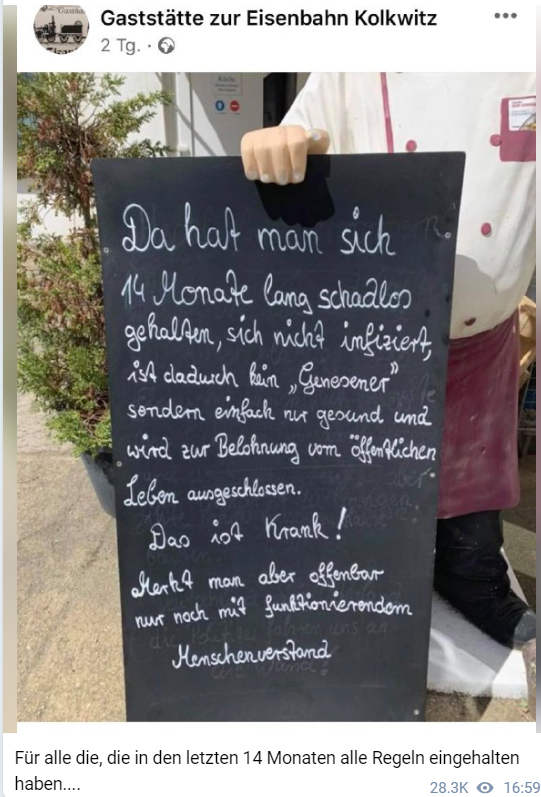 Gaststätte zur Eisenbahn Kolkwitz
2 Tg.
Küche
Da hat man sich
14 Monate lang schadlos
gehalten, sich nicht infiziert,
ist dadurch kein „Genesener"
sondern einfach nur gesund und
wird zur Belohnung vom öffentlichen
Leben ausgeschlossen.
Das ist Krank!
Merkt man aber offenbar
nur noch mit funktionierendem
Menschenverstand
Für alle die, die in den letzten 14 Monaten alle Regeln eingehalten
haben....
28.3K 16:59